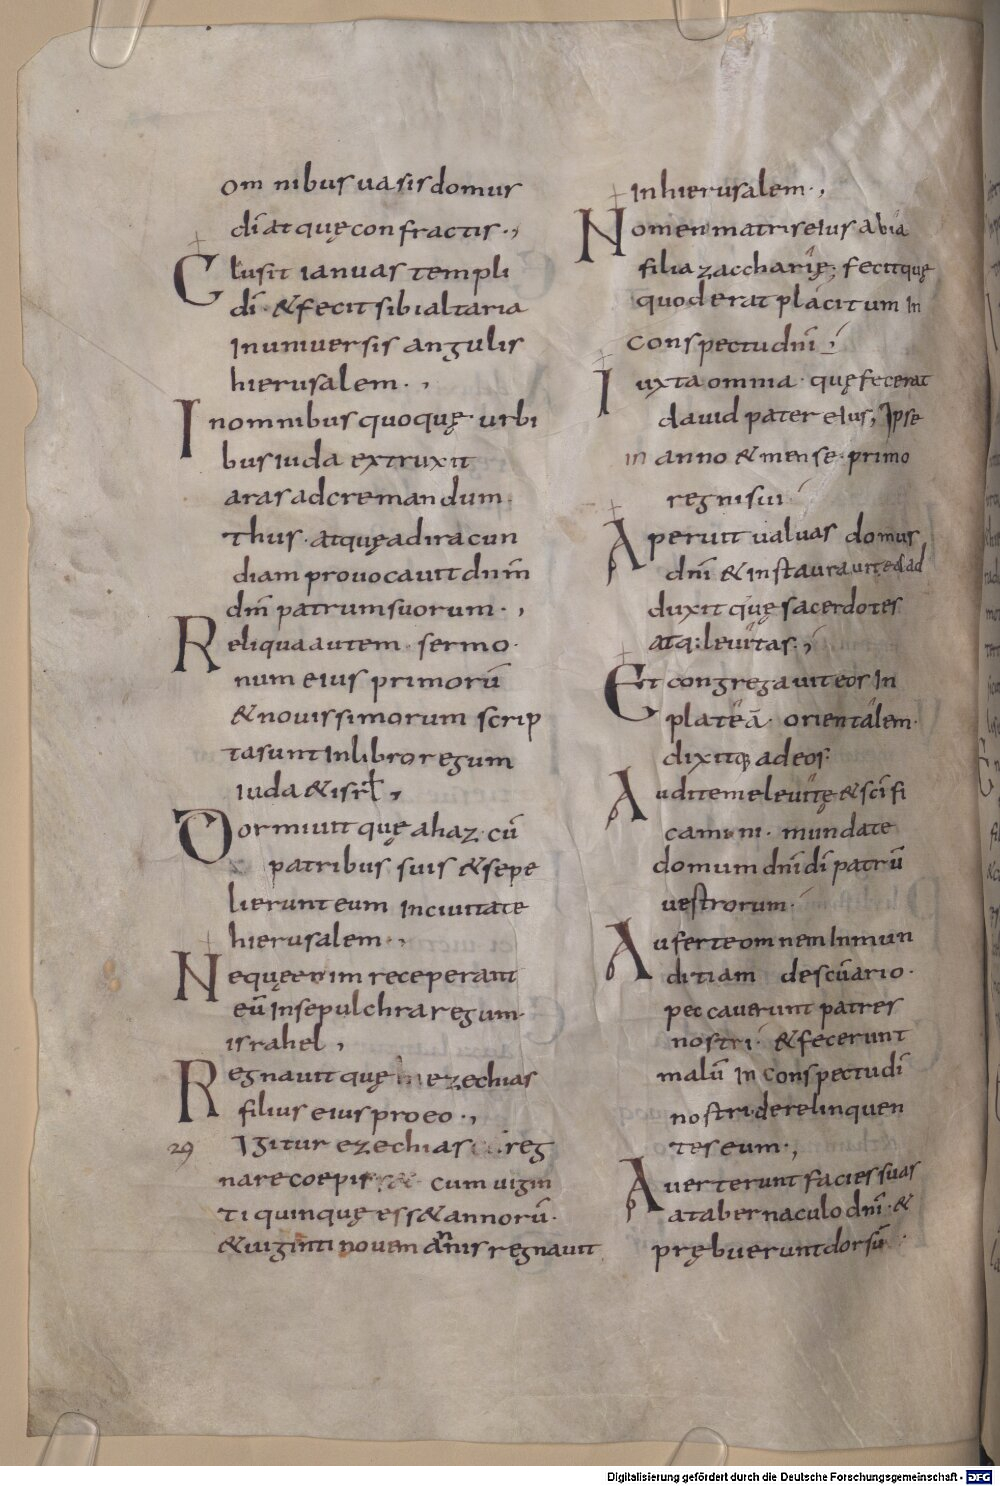 omnibus uasis domus
dī atquę confractis.,
Clusit ianuas templi
dī. & fecit sibi altaria
in uniuersis angulis
hierusalem.,
In omnibus quoquę urbi
bus iuda extruxit
aras ad cremandum
thus. atquę ad iracun
diam prouocauit dnm̄
dm̄ patrum suorum.,
Reliqua autem sermo
num eius primorū
& nouissimorum scrip
ta sunt in libro regum
iuda & isrł,
Dormiuit quę ahaz cū
patribus suis & sepe
lierunt eum in ciuitate
hierusalem.,
Nequę enim receperant
eū in sepulchra regum
israhel,
Regnauit quę ezechias
filius eius pro eo.,
29 Igitur ezechias reg
nare coepit cum uigin
ti quinquę ess& annorū.
& uiginti nouem annis regnauit
in hierusalem.,
Nomen matris eius abia
filia zaccharię; fecitquę
quod erat placitum in
conspectu dnī
Iuxta omnia quę fecerat
dauid pater eius, Ipse
in anno & mense primo
regni sui
Aperuit ualuas domus
dnī & instaurauit eas ad
duxitquę sacerdotes
atq: leuitas.,
Et congregauit eos in
plateā orientalem.
dixitq; ad eos.
Audite me leuitę & scīfi
camini. mundate
domum dnī dī patrū
uestrorum.
Auferte omnem inmun
ditiam de scūario.
peccauerunt patres
nostri. & fecerunt
malū in conspectu dī
nostri derelinquen
tes eum.,
Auerterunt facies suas
a tabernaculo dnī. &
prębuerunt dorsū.
Digitalisierung gefördert durch die Deutsche Forschungsgemeinschaft - DFG